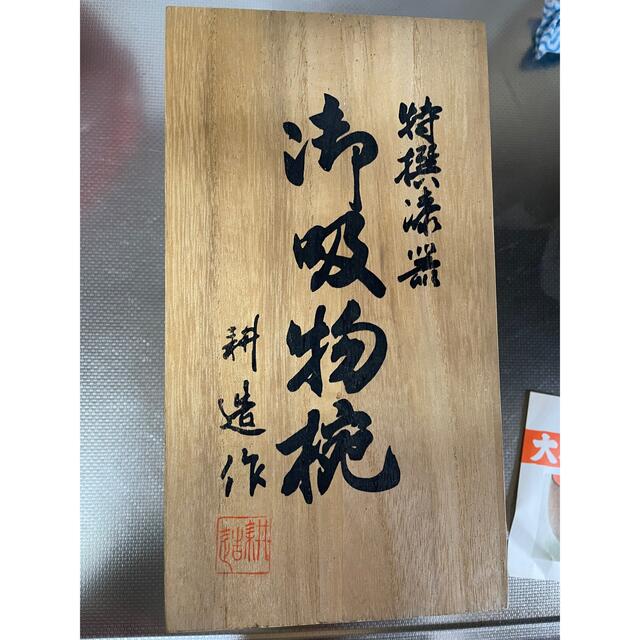 特撰漆器
御吸物椀
耕造作
耕造
大